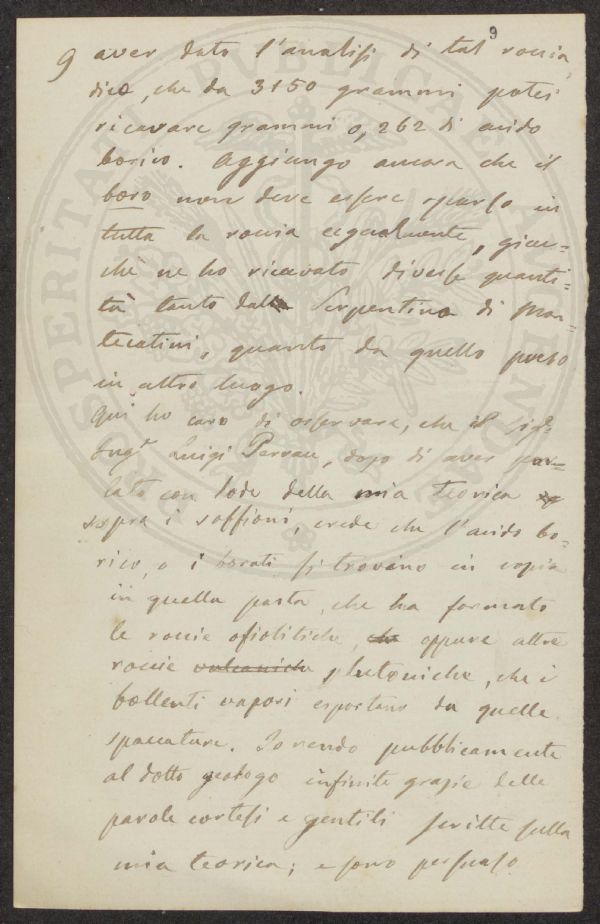 9
9 aver dato l'analisi di tal roccia,
dice, che da 3150 grammi potei
ricavare grammi 0,262 di acido
borico. Aggiungo ancora che il
boro non deve essere sparso in
tutta la roccia egualmente, giac=
chè ne ho ricavato diverse quanti=
tà tanto dalla Serpentina di Mon=
tecatini, quanto da quello preso
in altro luogo.
Qui ho caro di osservare, che il Sigr
Ingr Luigi , dopo di aver par=
lato con lode della mia teorica
sopra i soffioni, crede che l'acido bo=
rico, o i borati si trovino in copia
in quella pasta, che ha formato
le roccie ofiolitiche, che oppure altre
roccie vulcaniche plutoniche, che i
bollenti vapori esportano da quelle
spaccature. Io rendo pubblicamente
al dotto geologo infinite grazie delle
parole cortesi e gentili scritte sulla
mia teorica; e sono persuaso
PROSPERITATI PUBLICAE AUGENDAE